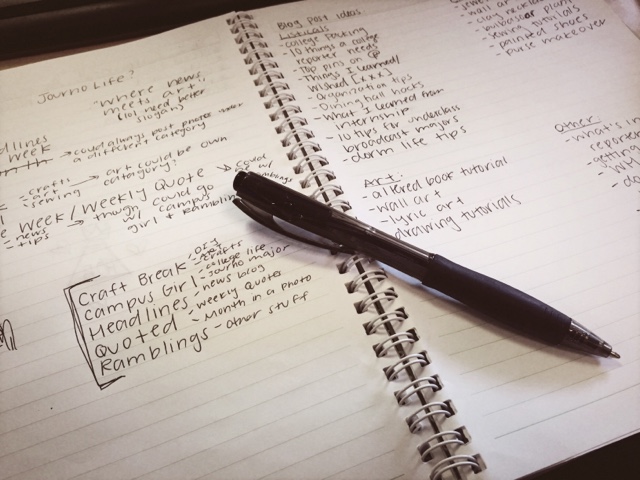 Journo Life?
"Where news
meets art"
(lol need better
slogan)
dlines
week
month → could always post photo under
a different category
- crafts → art could be own
- art category?
- sewing
Week/Weekly Quote → could
- news → though could go
- tips girl + ramblings
Craft Break - crafts
Campus Girl - college life
- journo major
Headlines - news blog
Quoted - weekly quotes
- month in a photo
Ramblings - other stuff
Blog post ideas
Listicals
- college packing
- 10 things a college
reporter needs
- Top pins on
- Things I learned/
wished [xxx]
- organization tips
- Dining hall hacks
- What I learned from
internship
- 10 tips for underclass
broadcast majors
- dorm life tips
Art:
- altered book tutorial
- wall art
- lyric art
- drawing tutorials
- wall art
- clay
- plant
- sewing tutorials
- painted shoes
- purse makeover
Other
- what's